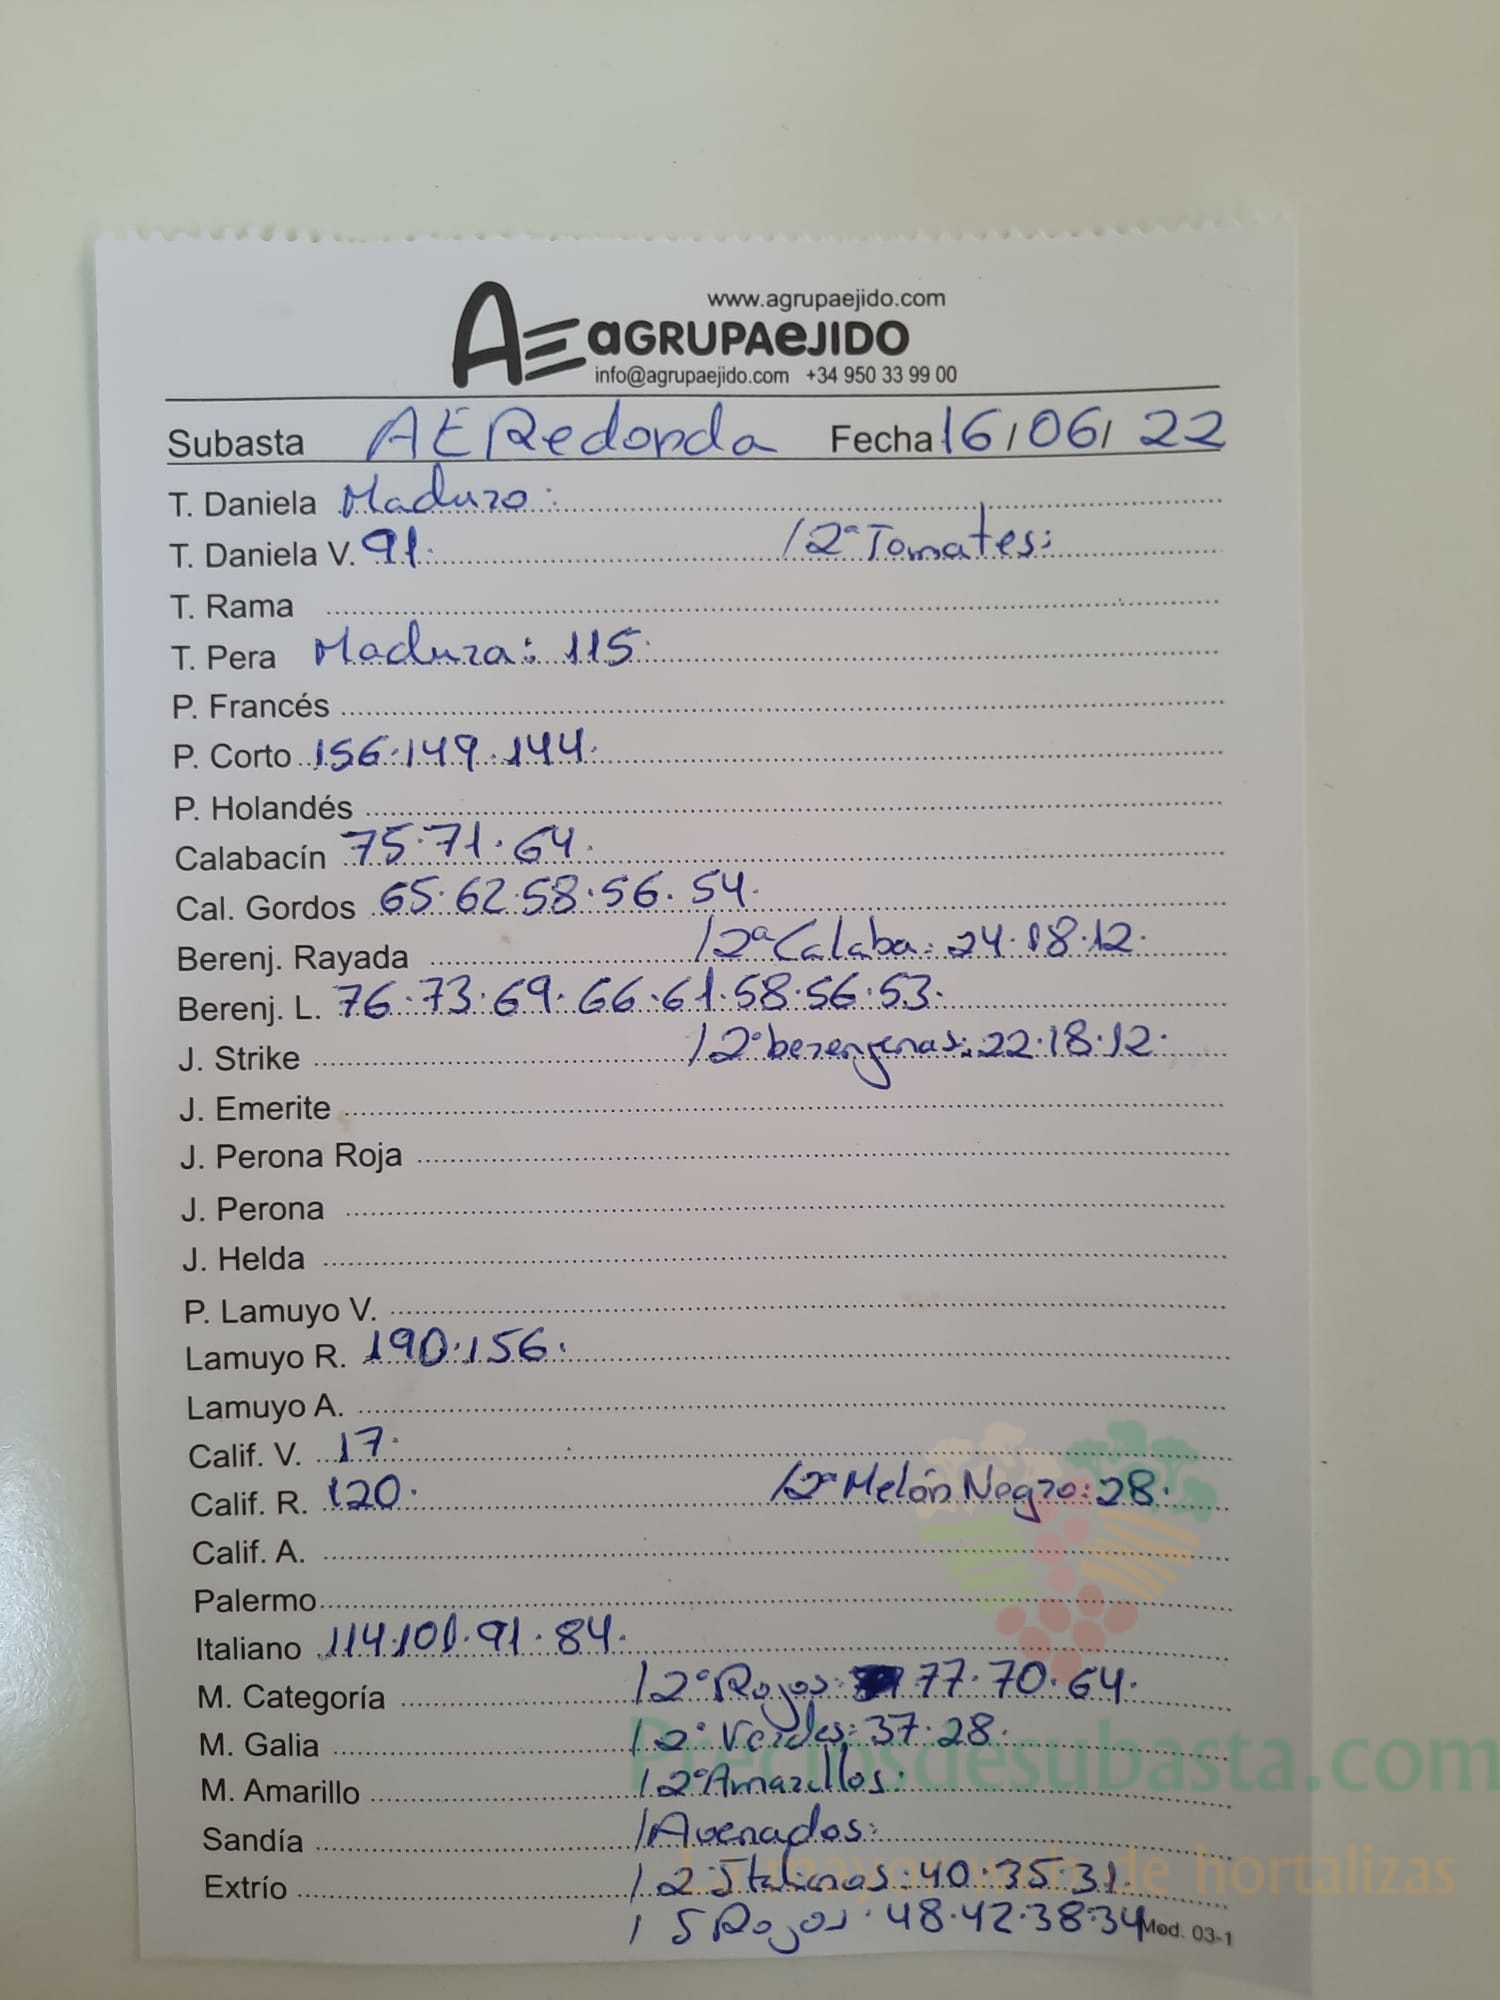 www.agrupaejido.com
AE aGRUPAeJIDO
info@agrupaejido.com +34 950 33 99 00
Subasta AE Redonda Fecha 16/06/22
T. Daniela Maduro:
T. Daniela V. 91. /2ª Tomates:
T. Rama
T. Pera Madura: 115.
P. Francés
P. Corto 156.149.144.
P. Holandés
Calabacín 75.71.64.
Cal. Gordos 65.62.58.56.54.
Berenj. Rayada /2ª Calaba: 24.18.12.
Berenj. L. 76.73.69.66.61.58.56.53.
J. Strike /2ª berenjenas: 22.18.12.
J. Emerite
J. Perona Roja
J. Perona
J. Helda
P. Lamuyo V.
Lamuyo R. 190.156.
Lamuyo A.
Calif. V. 17.
Calif. R. 120. /2ª Melón Negro: 28.
Calif. A.
Palermo
Italiano 114.101.91.84.
M. Categoría /2º Rojos: 77.70.64.
M. Galia /2º Verdes: 37.28.
M. Amarillo /2º Amarillos:
Sandía /Avenados:
Extrío /2º Italianos: 40.35.31.
/ 5 Rojos. 48.42.38.34
Mod. 03-1
Preciosdesubasta.com
La mayor web de hortalizas